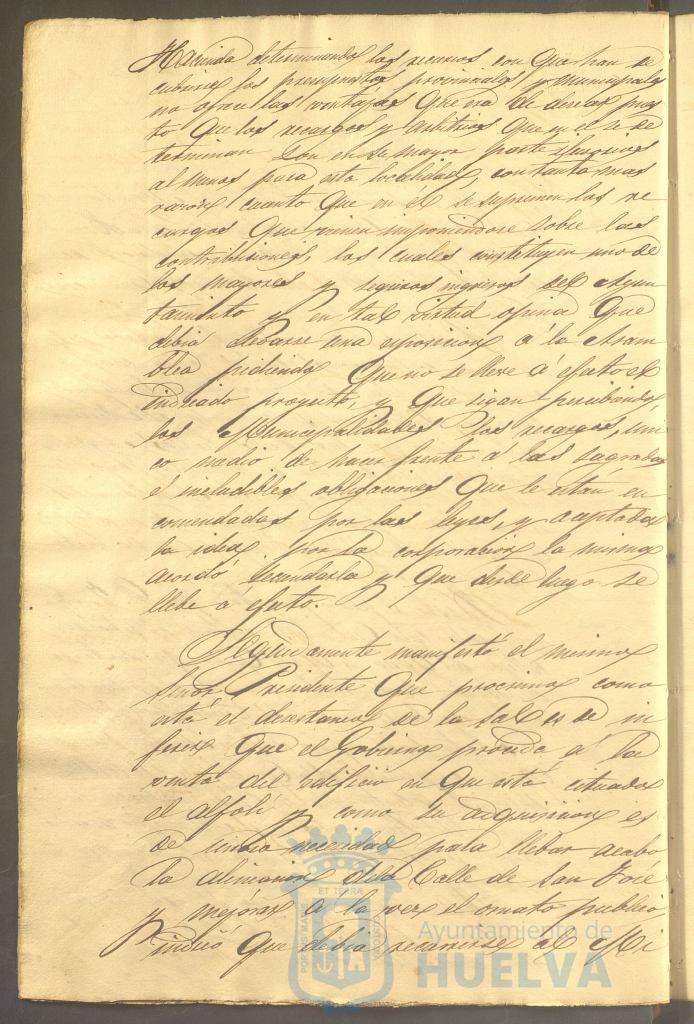 Hacienda determinando los recursos con que han de
cubrirse los presupuestos provinciales y municipales
no ofrece las ventajas que era de desear pues
to que los recargos y arbitrios que en el se de
terminan son en su mayor parte ilusorios
al menos para esta localidad, con tanta mas
razon cuanto que en el se suprimen los re
cargos que vienen imponiendose sobre las
contribuciones, los cuales constituyen uno de
los mayores y seguros ingresos del Ayun
tamiento y en tal virtud opina que
debia elevarse una esposicion á la Asam
blea pidiendo que no se lleve á efecto el
indicado proyecto, y que sigan percibiendo
las Municipalidades los recargos, uni
co medio de hacer frente á las sagradas
é ineludibles obligaciones que le estan en
comendadas por las leyes, y aceptada
la idea por la corporacion la misma
acordó secundarla y que desde luego se
llebe a efecto.
Seguidamente manifestó el mismo
Señor Presidente que procsimo como
está el desestanco de la sal es de in
ferir que el Gobierno proceda á la
venta del edificio en que está cituado
el alfolí y como su adquisicion es
de suma necesidad para llebar acabo
la alineacion de la Calle de San José
y mejorar a la vez el ornato publico
indicó que debia recurrirse al Mi
Ayuntamiento de
HUELVA
ET TERRÆ